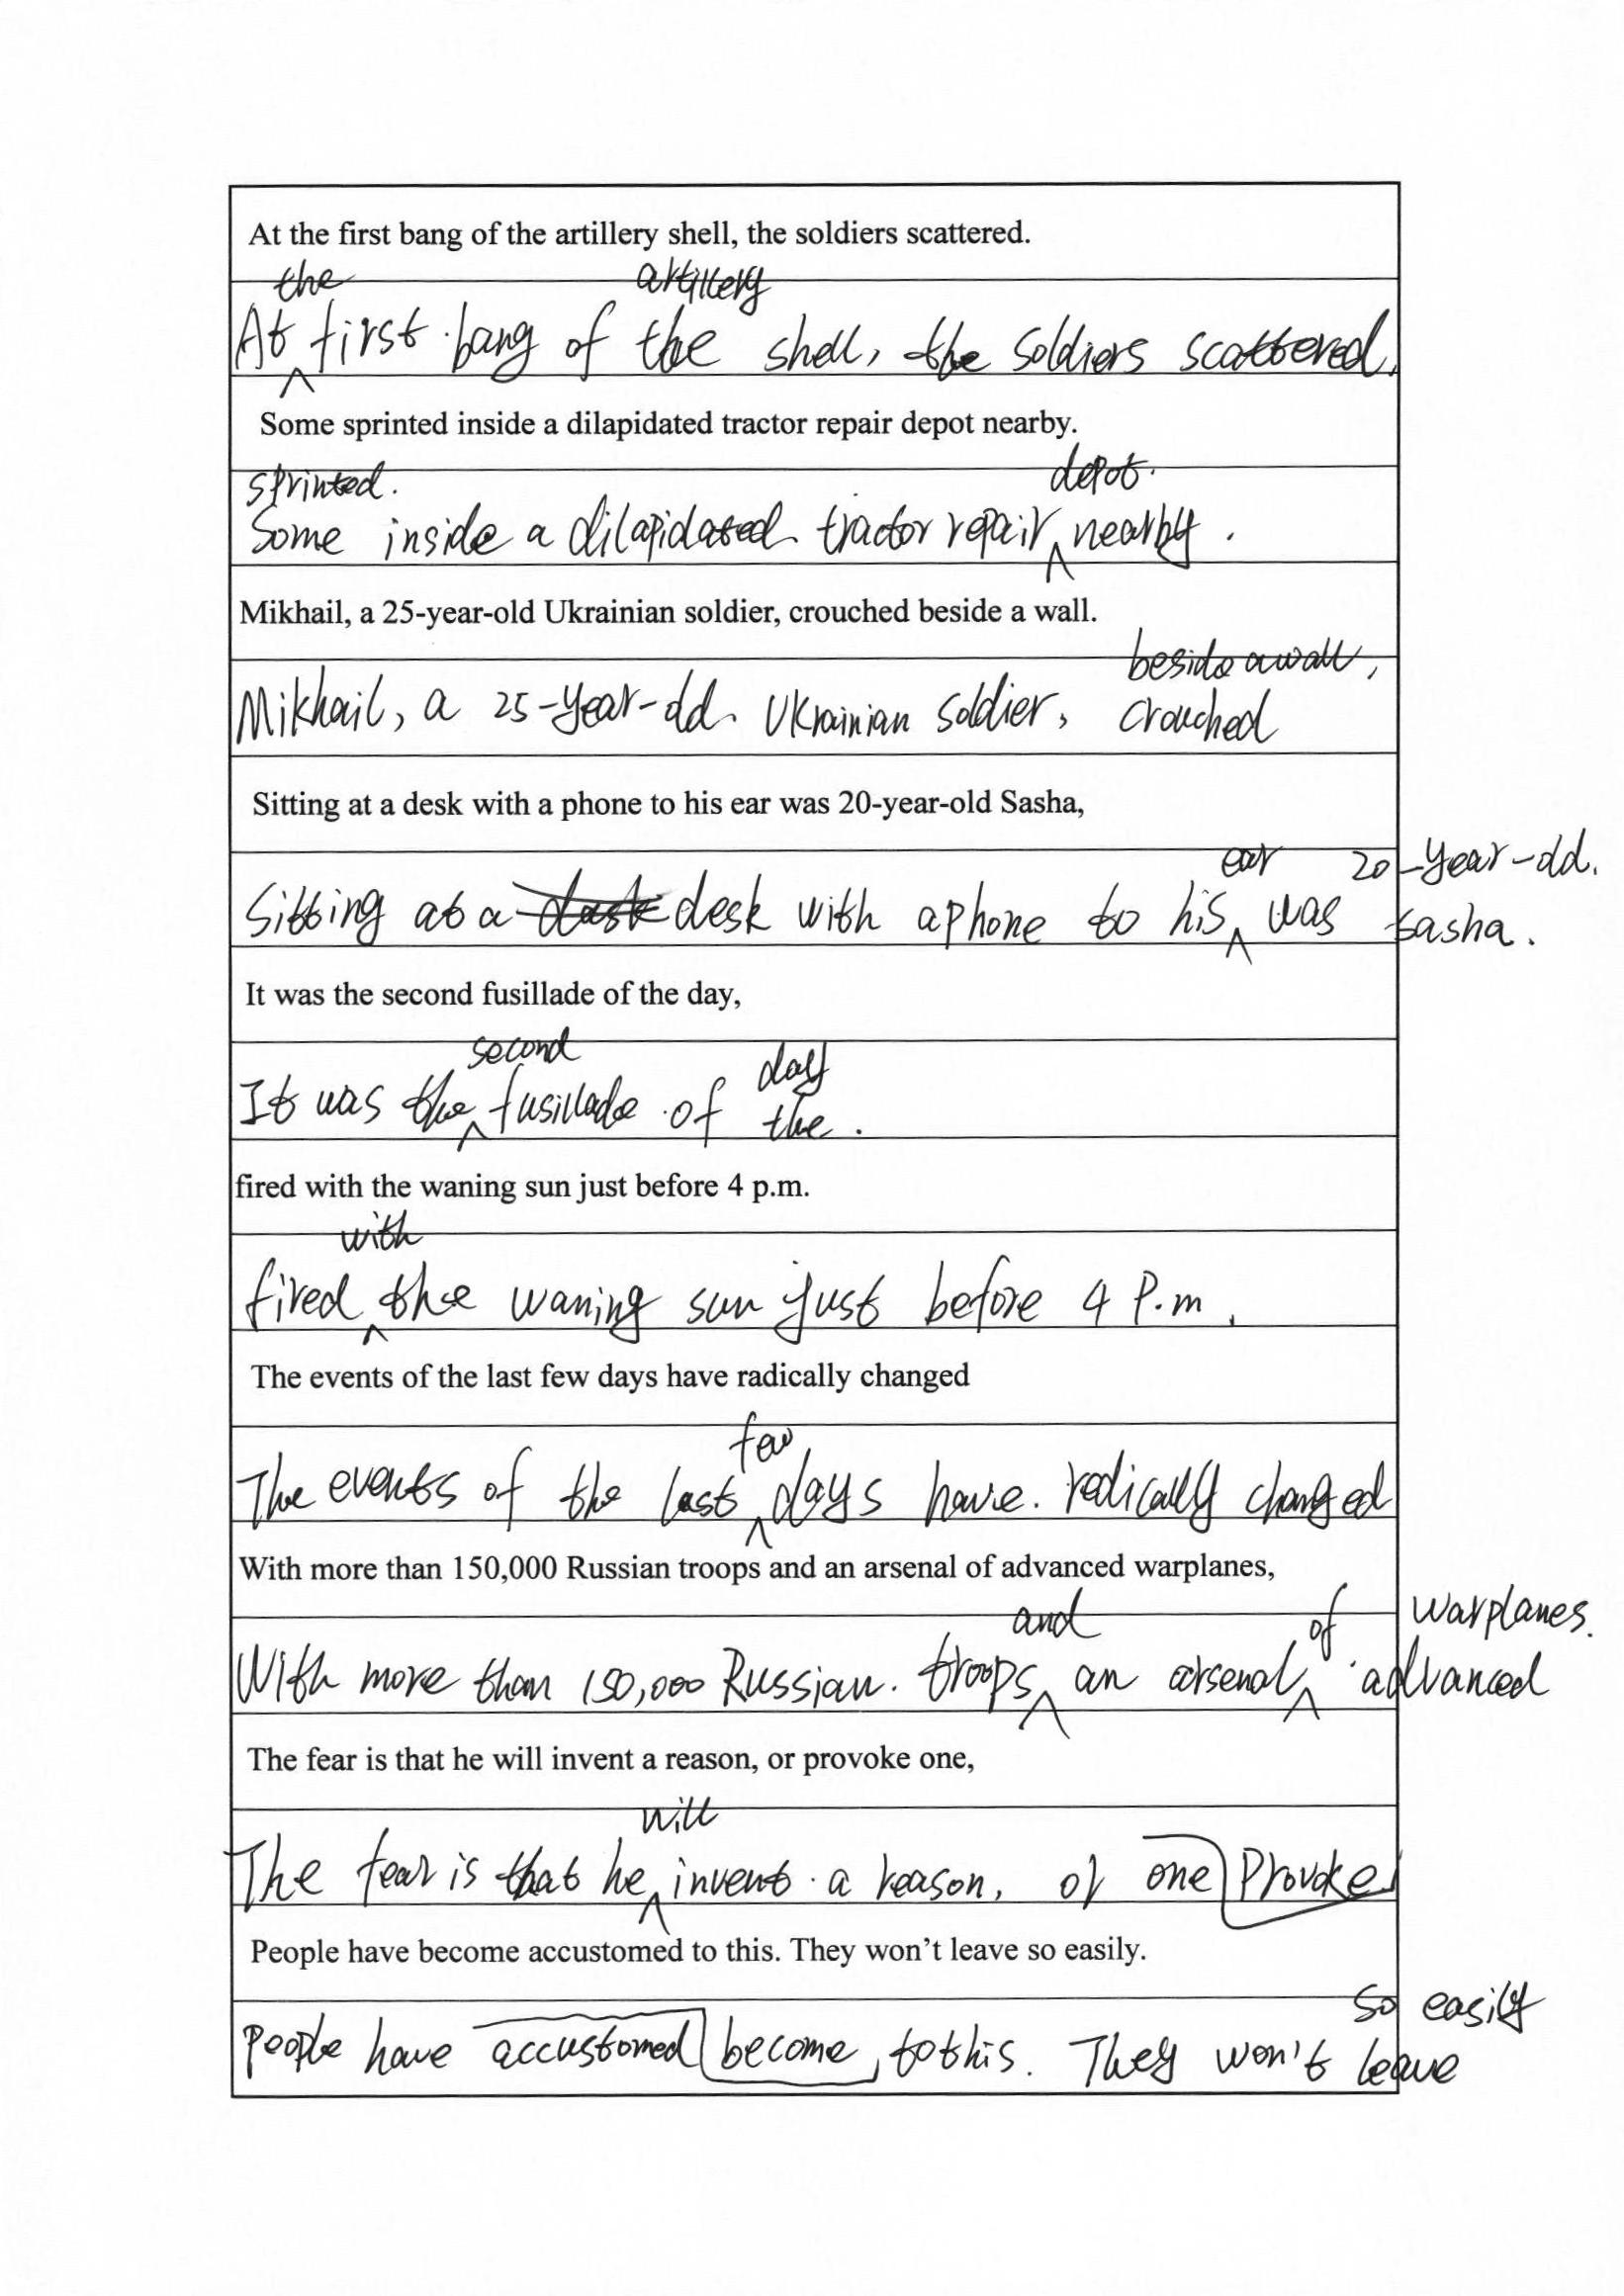 At the first bang of the artillery shell, the soldiers scattered.
At the first bang of the artillery shell, the soldiers scattered.
Some sprinted inside a dilapidated tractor repair depot nearby.
Some sprinted inside a dilapidated tractor repair depot nearby.
Mikhail, a 25-year-old Ukrainian soldier, crouched beside a wall.
Mikhail, a 25-year-old Ukrainian soldier, crouched beside a wall,
Sitting at a desk with a phone to his ear was 20-year-old Sasha,
Sitting at a desk with a phone to his ear was 20-year-old Sasha.
It was the second fusillade of the day,
It was the second fusillade of the day.
fired with the waning sun just before 4 p.m.
fired with the waning sun just before 4 P.m.
The events of the last few days have radically changed
The events of the last few days have radically changed
With more than 150,000 Russian troops and an arsenal of advanced warplanes,
With more than 150,000 Russian. troops and an arsenal of advanced warplanes.
The fear is that he will invent a reason, or provoke one,
The fear is that he will invent a reason, or provoke one
People have become accustomed to this. They won't leave so easily.
People have become accustomed to this. They won't leave so easily